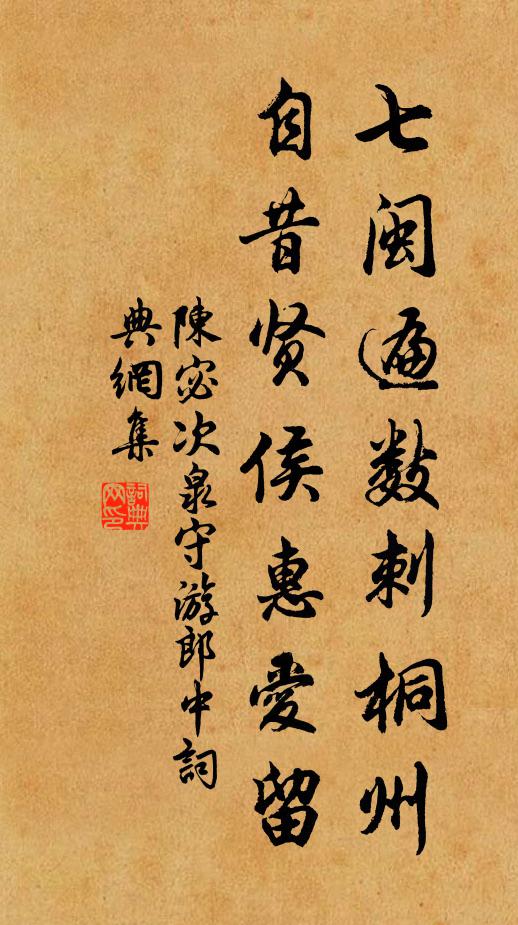 七閩遍數刺桐州
自昔贤侯惠愛留
陳宓次泉守游郎中詞
典網集
詞典
网印